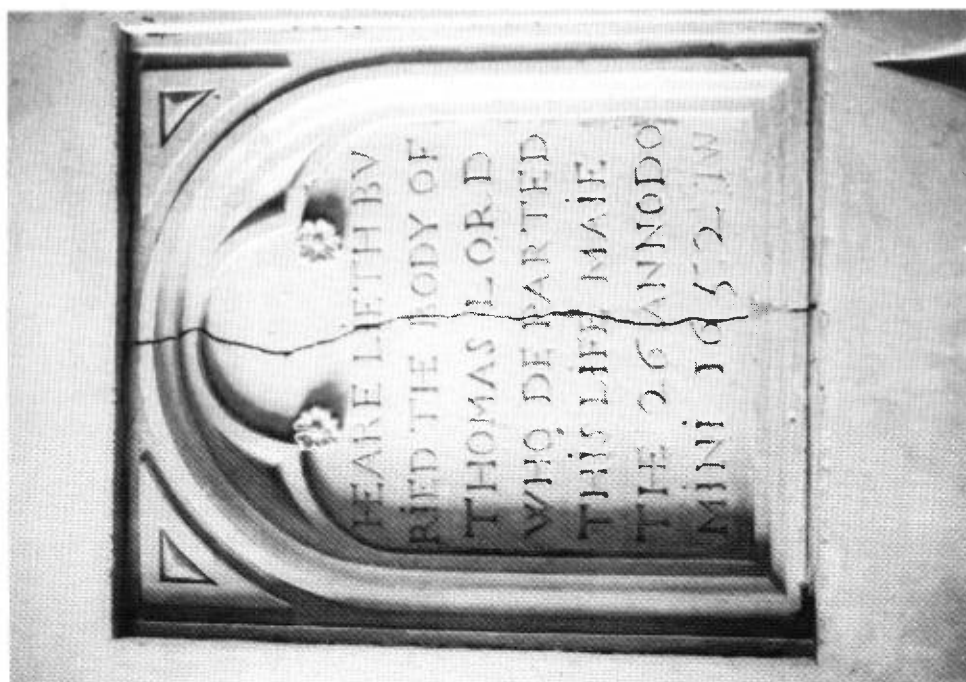 HEARE LIETH BV
RIED THE BODY OF
THOMAS LORD
WHO DE PARTED
THIS LIFE MAIE
THE 26 ANNODO
MINI 1652 IW